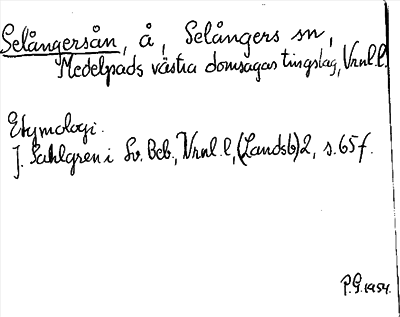 Selångersån, å, Selångers sn,
Medelpads västra domsagas tingslag, Vrnl. l.
Etymologi.
J. Sahlgren i Sv. Beb., Vrnl. l, (Landsb) 2, s. 65 f.
P.G. 1954.